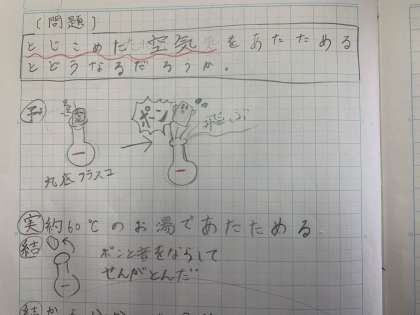 (問題)
とじこめた空気をあたためる
とどうなるだろうか。
予
ポーン
飛ぶ
丸底フラスコ
実 約60℃のお湯であたためる
結
ポンと音をならして
せんがとんだ